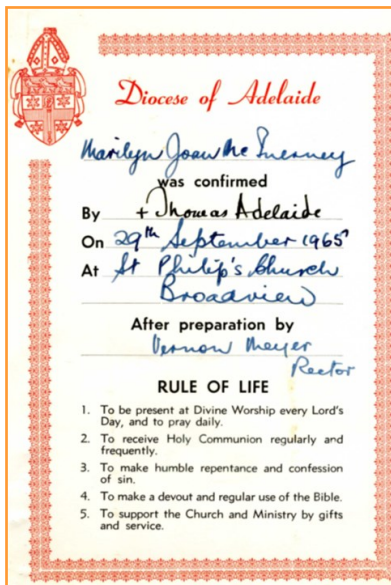 Diocese of Adelaide
Marilyn Joan Mc Inerney
was confirmed
By + Thomas Adelaide
On 29th September 1965
At St Philip's Church
Broadview
After preparation by
Vernon Meyer
Rector
RULE OF LIFE
1. To be present at Divine Worship every Lord's
Day, and to pray daily.
2. To receive Holy Communion regularly and
frequently.
3. To make humble repentance and confession
of sin.
4. To make a devout and regular use of the Bible.
5. To support the Church and Ministry by gifts
and service.